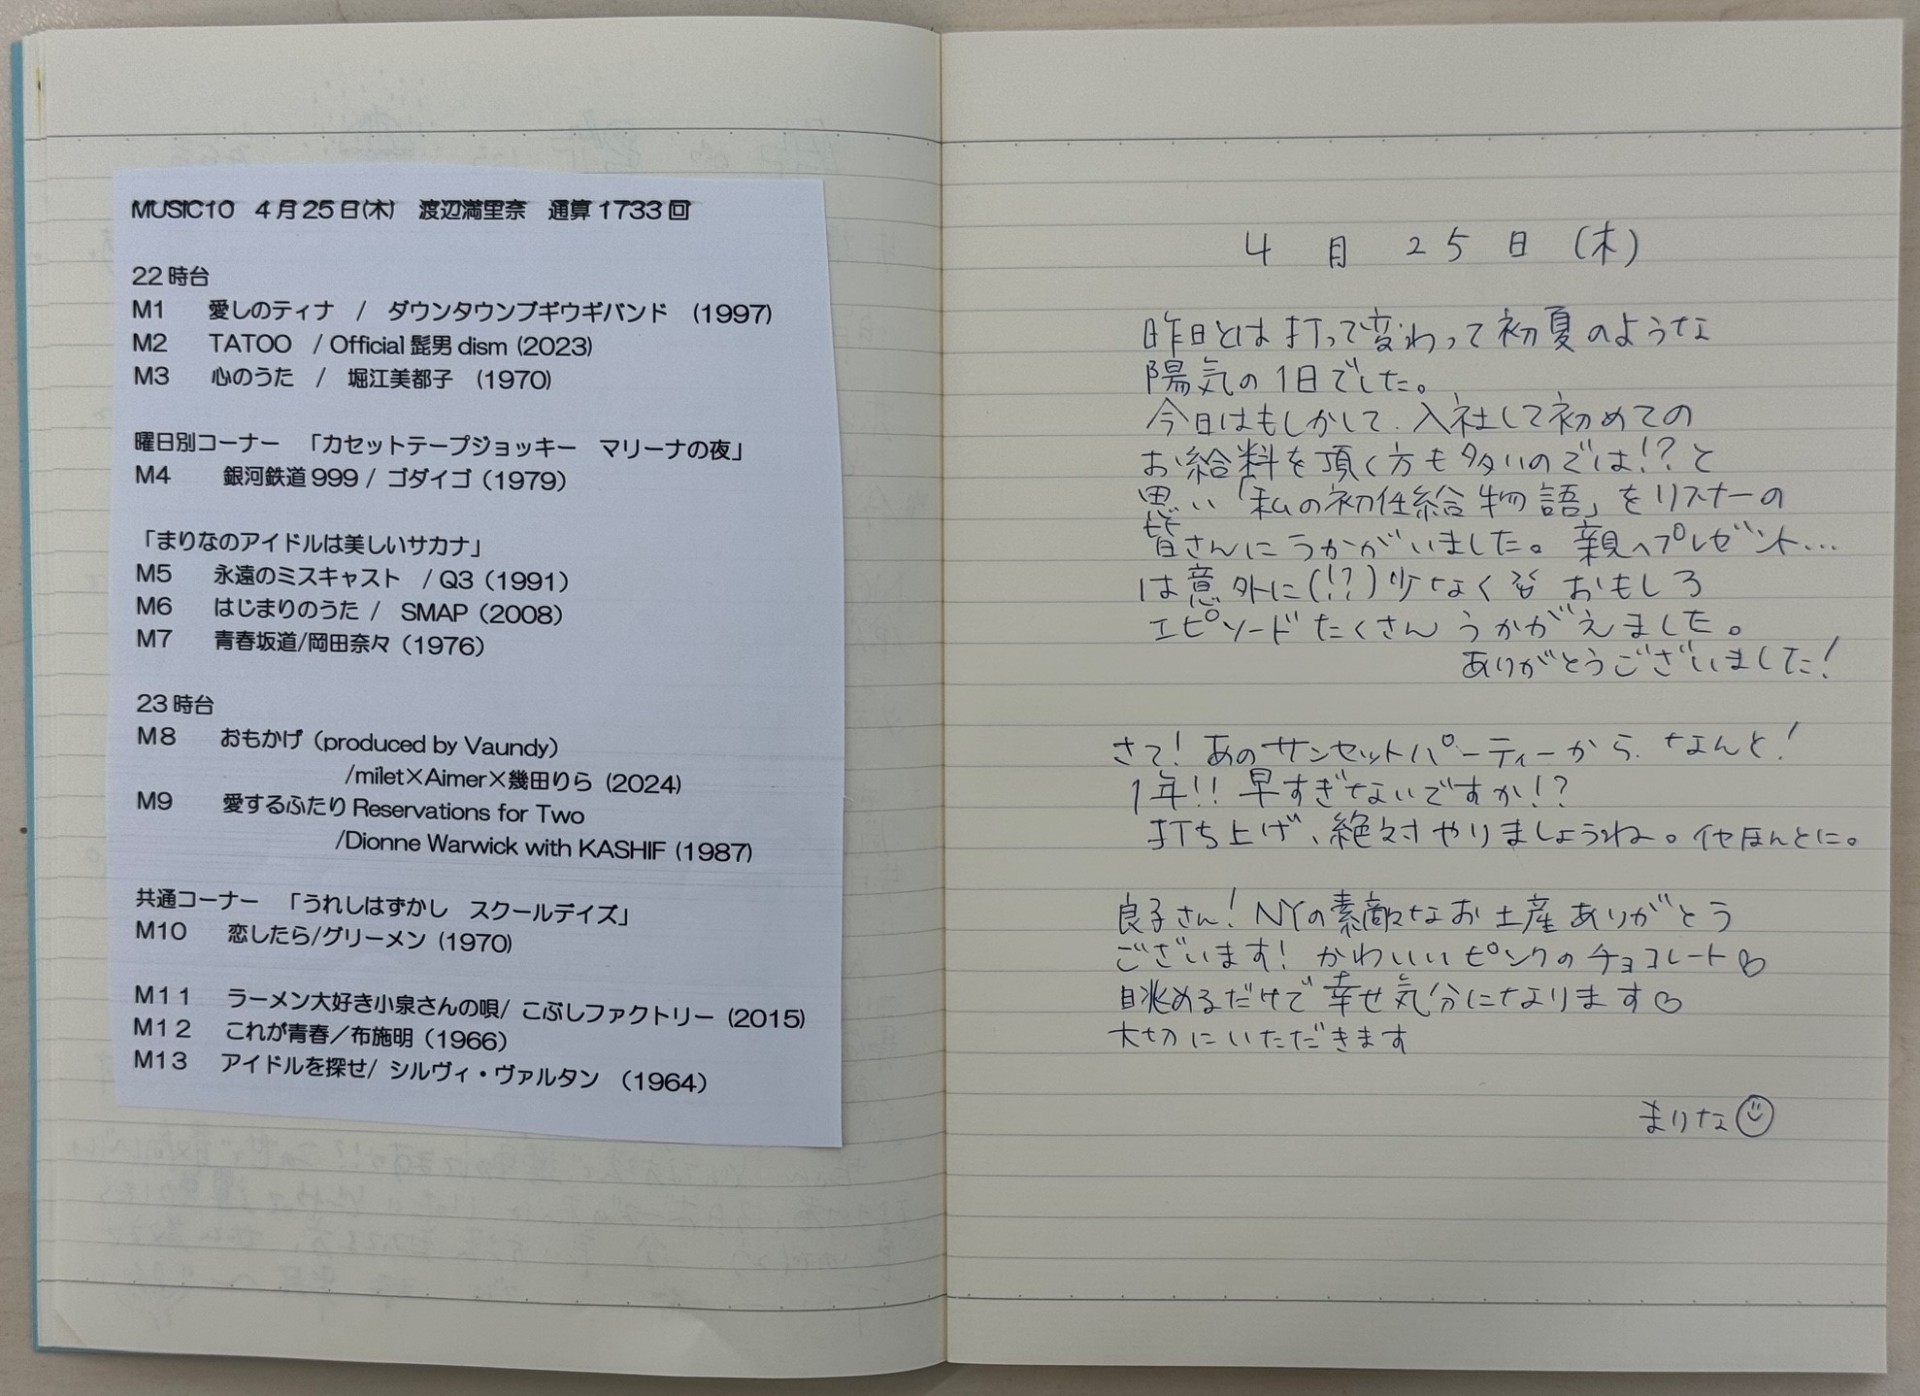 MUSIC10　4月25日(木)　渡辺満里奈　通算1733回
22時台
M1　愛しのティナ　/　ダウンタウンブギウギバンド　(1997)
M2　TATOO　/ Official髭男dism (2023)
M3　心のうた　/　堀江美都子　(1970)
曜日別コーナー　「カセットテープジョッキー　マリーナの夜」
M4　銀河鉄道999 / ゴダイゴ（1979）
「まりなのアイドルは美しいサカナ」
M5　永遠のミスキャスト　/ Q3（1991）
M6　はじまりのうた /　SMAP（2008）
M7　青春坂道/岡田奈々（1976）
23時台
M8　おもかげ（produced by Vaundy）
/milet×Aimer×幾田りら (2024)
M9　愛するふたりReservations for Two
/Dionne Warwick with KASHIF (1987)
共通コーナー　「うれしはずかし　スクールデイズ」
M10　恋したら/グリーメン (1970)
M11　ラーメン大好き小泉さんの唄/ こぶしファクトリー (2015)
M12　これが青春／布施明（1966）
M13　アイドルを探せ/ シルヴィ・ヴァルタン　（1964）
4月25日(木)
昨日とは打って変わって初夏のような
陽気の1日でした。
今日はもしかして、入社して初めての
お給料を頂く方も多いのでは!?と
思い「私の初任給物語」をリスナーの
皆さんにうかがいました。親へプレゼント…
は意外に(!?)少なく おもしろ
エピソードたくさんうかがえました。
ありがとうございました!
さて!あのサンセットパーティーから、なんと!
1年!!早すぎないですか!?
打ち上げ、絶対やりましょうね。 ほんとに。
良子さん!NYの素敵なお土産ありがとう
ございます!かわいいピンクのチョコレート♡
眺めるだけで幸せ気分になります♡
大切にいただきます
まりな